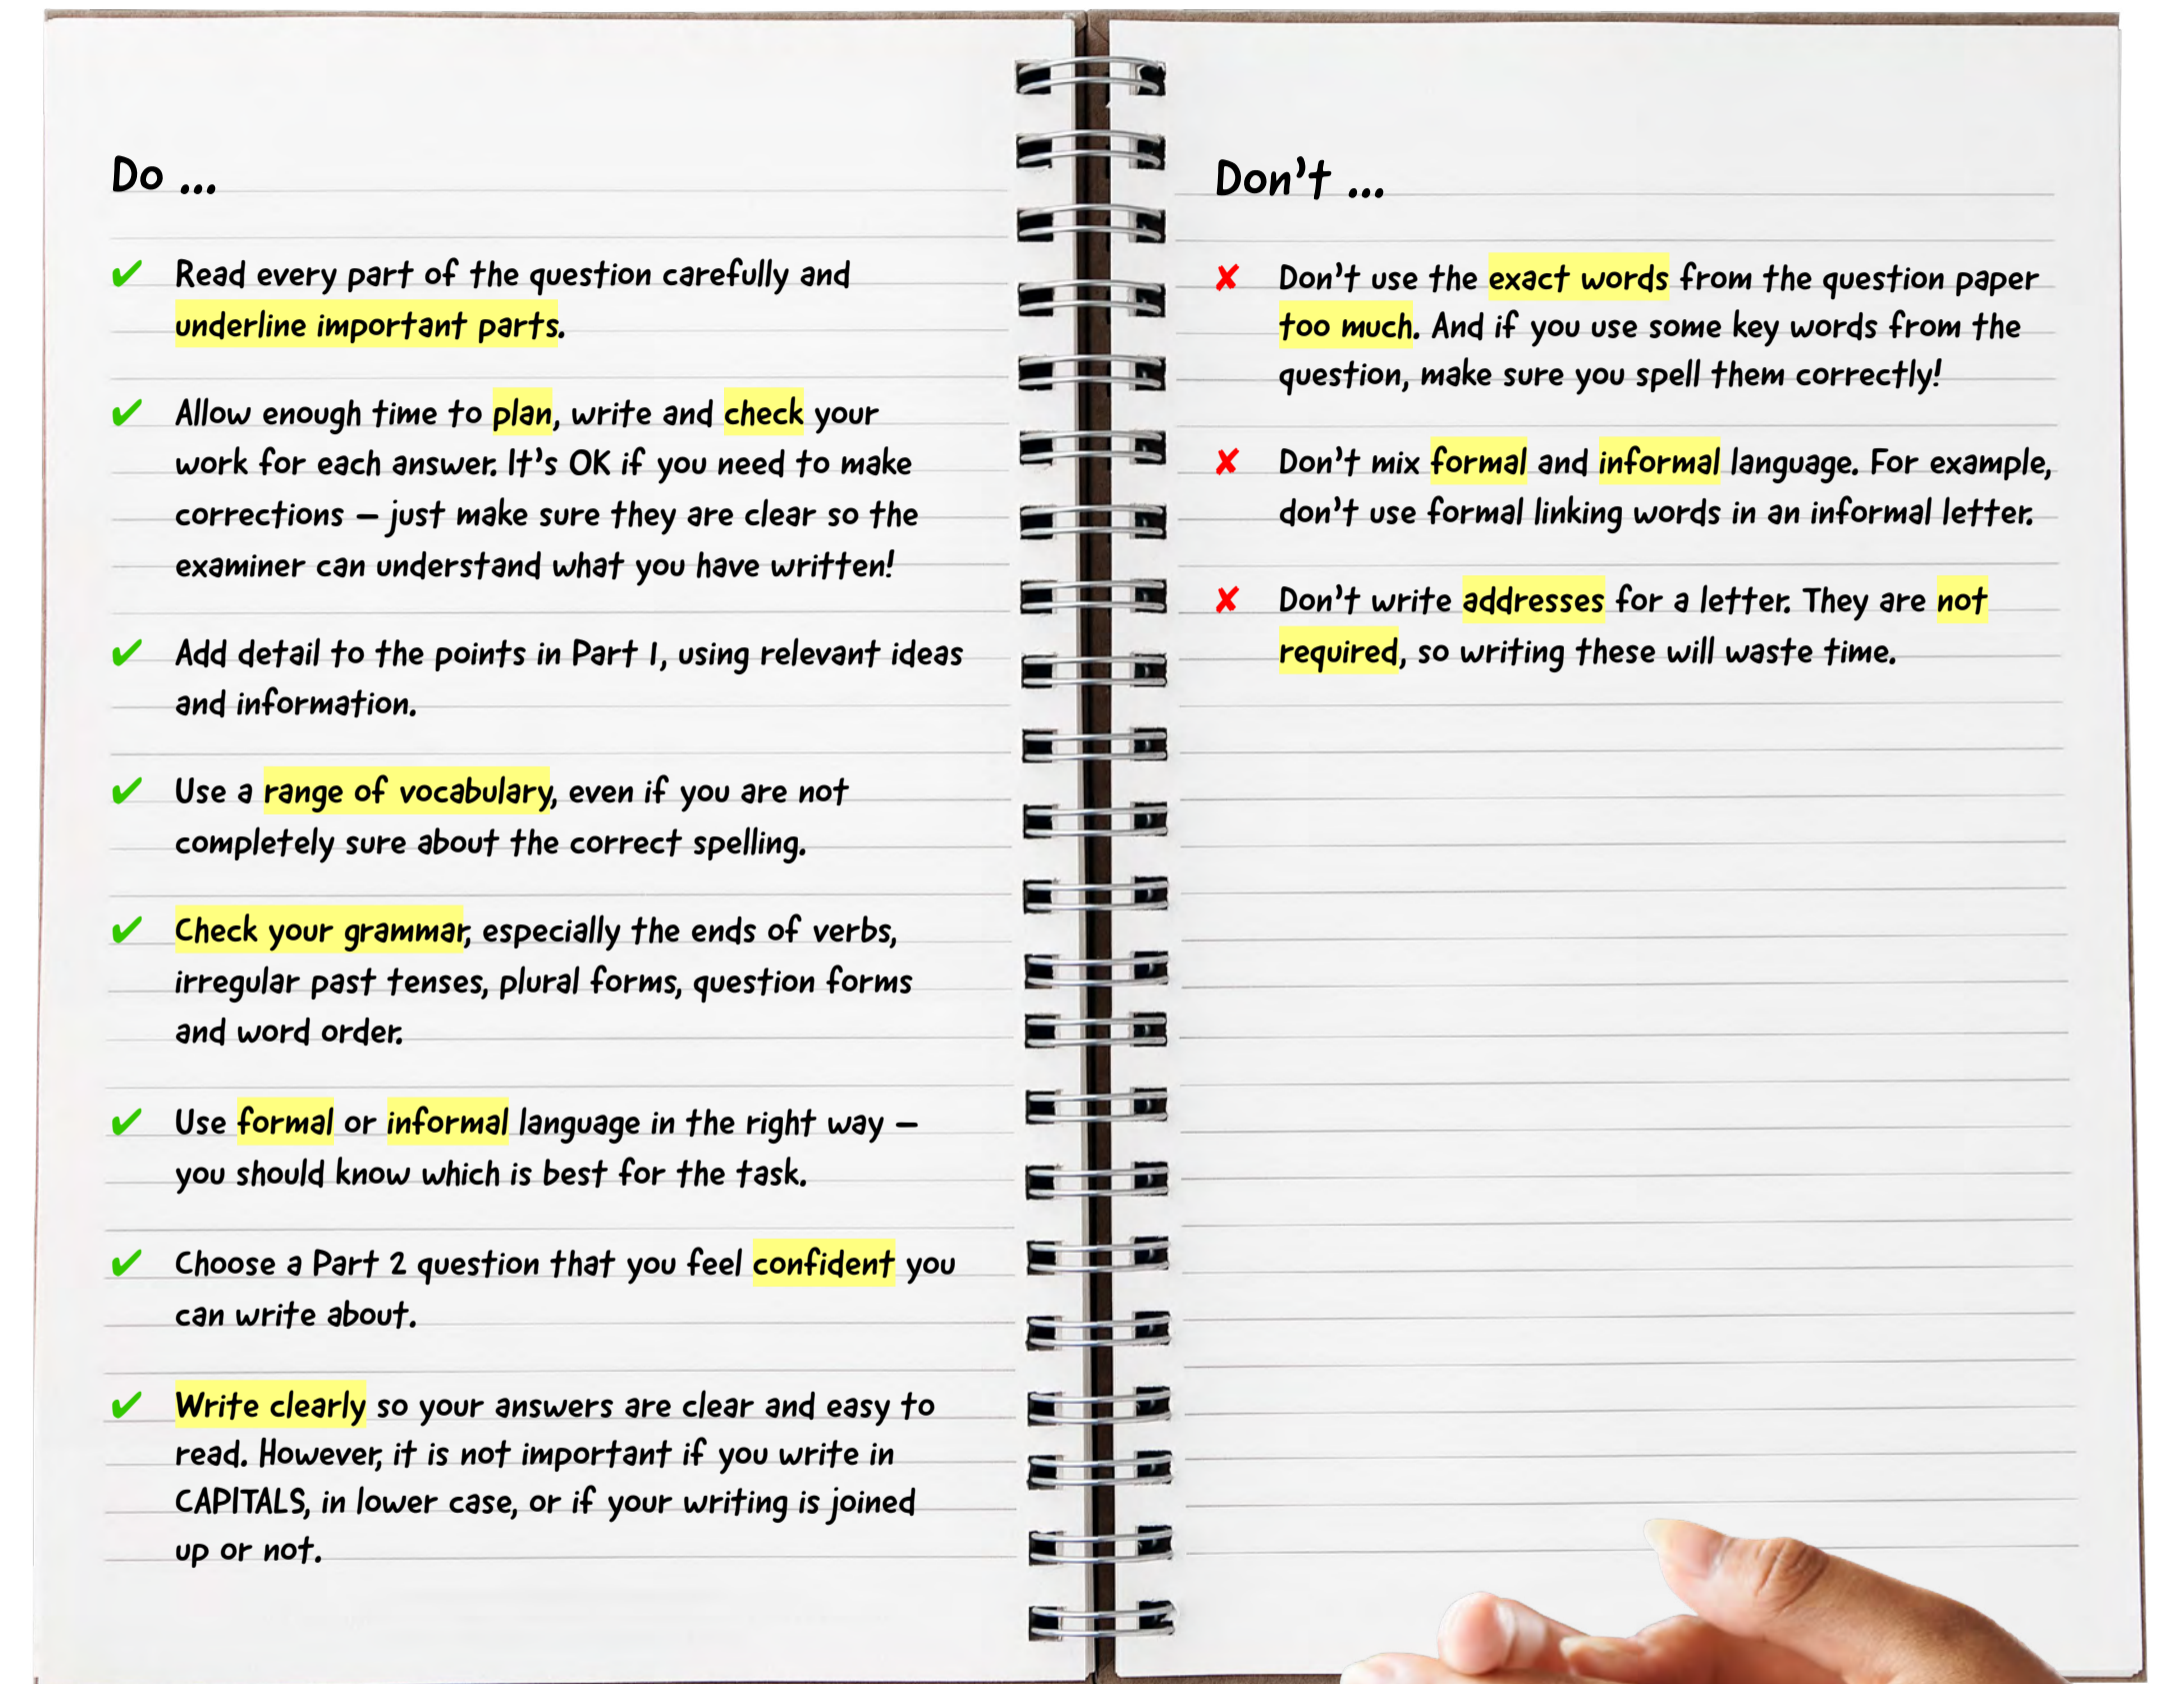 Do ...
✔ Read every part of the question carefully and
underline important parts.
✔ Allow enough time to plan, write and check your
work for each answer. It's OK if you need to make
corrections – just make sure they are clear so the
examiner can understand what you have written!
✔ Add detail to the points in Part 1, using relevant ideas
and information.
✔ Use a range of vocabulary, even if you are not
completely sure about the correct spelling.
✔ Check your grammar, especially the ends of verbs,
irregular past tenses, plural forms, question forms
and word order.
✔ Use formal or informal language in the right way –
you should know which is best for the task.
✔ Choose a Part 2 question that you feel confident you
can write about.
✔ Write clearly so your answers are clear and easy to
read. However, it is not important if you write in
CAPITALS, in lower case, or if your writing is joined
up or not.
Don't ...
✘ Don't use the exact words from the question paper
too much. And if you use some key words from the
question, make sure you spell them correctly!
✘ Don't mix formal and informal language. For example,
don't use formal linking words in an informal letter.
✘ Don't write addresses for a letter. They are not
required, so writing these will waste time.